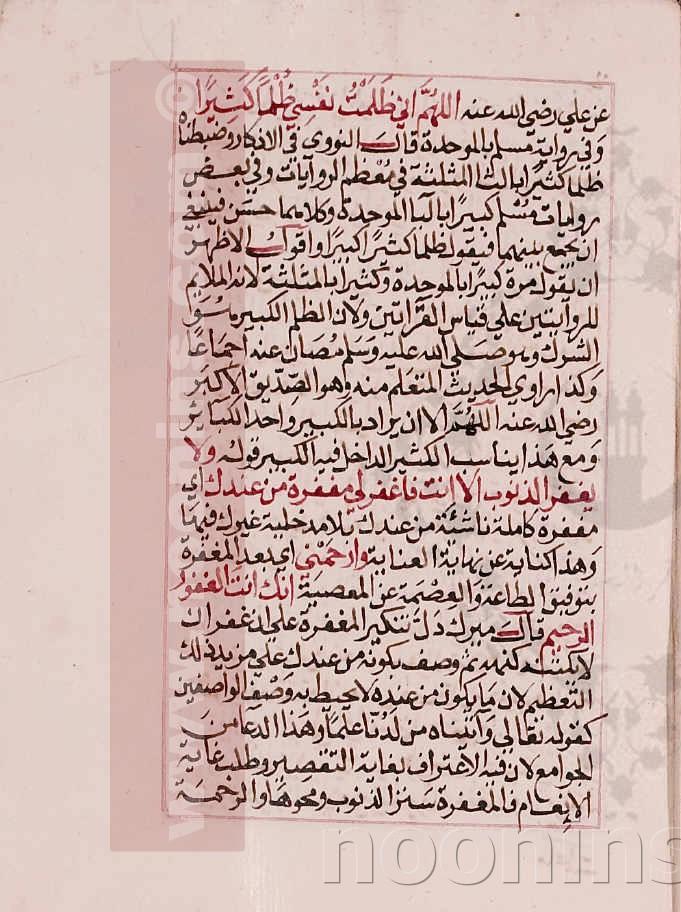 عن علي رضي الله عنه اللهم اني ظلمت نفسي ظلما كثيرا
وفي رواية مسلم بالموحدة قال النووي في الاذكار وضبطناه
ظلما كثيرا بالثا المثلثة في معظم الروايات وفي بعض
روايات مسلم كبيرا بالبا الموحدة وكلاهما حسن فينبغي
ان يجمع بينهما فيقول ظلما كثيرا كبيرا واقول الاظهر
ان يقول مرة كبيرا بالموحدة وكثيرا بالمثلثة لانه الملايم
للروايتين علي قياس القراتين ولان الظلم الكبير هو
الشرك وهو صلي الله عليه وسلم مصان عنه اجماعا
وكذا راوي الحديث المتعلم منه وهو الصديق الاكبر
رضي الله عنه اللهم الا ان يراد بالكبير واحد الكبائر
ومع هذا يناسب الكثير الداخل فيه الكبير قوله ولا
يغفر الذنوب الا انت فاغفر لي مغفرة من عندك اي
مغفرة كاملة ناشئة من عندك بلا مدخلية غيرك فيها
وهذا كناية عن نهاية العناية وارحمني اي بعد المغفرة
بتوفيق الطاعة والعصمة عن المعصية انك انت الغفور
الرحيم قال ميرك دل تنكير المغفرة علي ان غفران
لا يكتنه كنهه ثم وصف بكونه من عندك علي مزيد ذلك
التعظيم لان ما يكون من عنده لا يحيط به وصف الواصفين
كقوله تعالي واتيناه من لدنا علما وهذا الدعا من
الجوامع لان فيه الاعتراف بغاية التقصير وطلب غاية
الانعام فالمغفرة ستر الذنوب ومحوها والرحمة
www.noonins.com ©
noonins